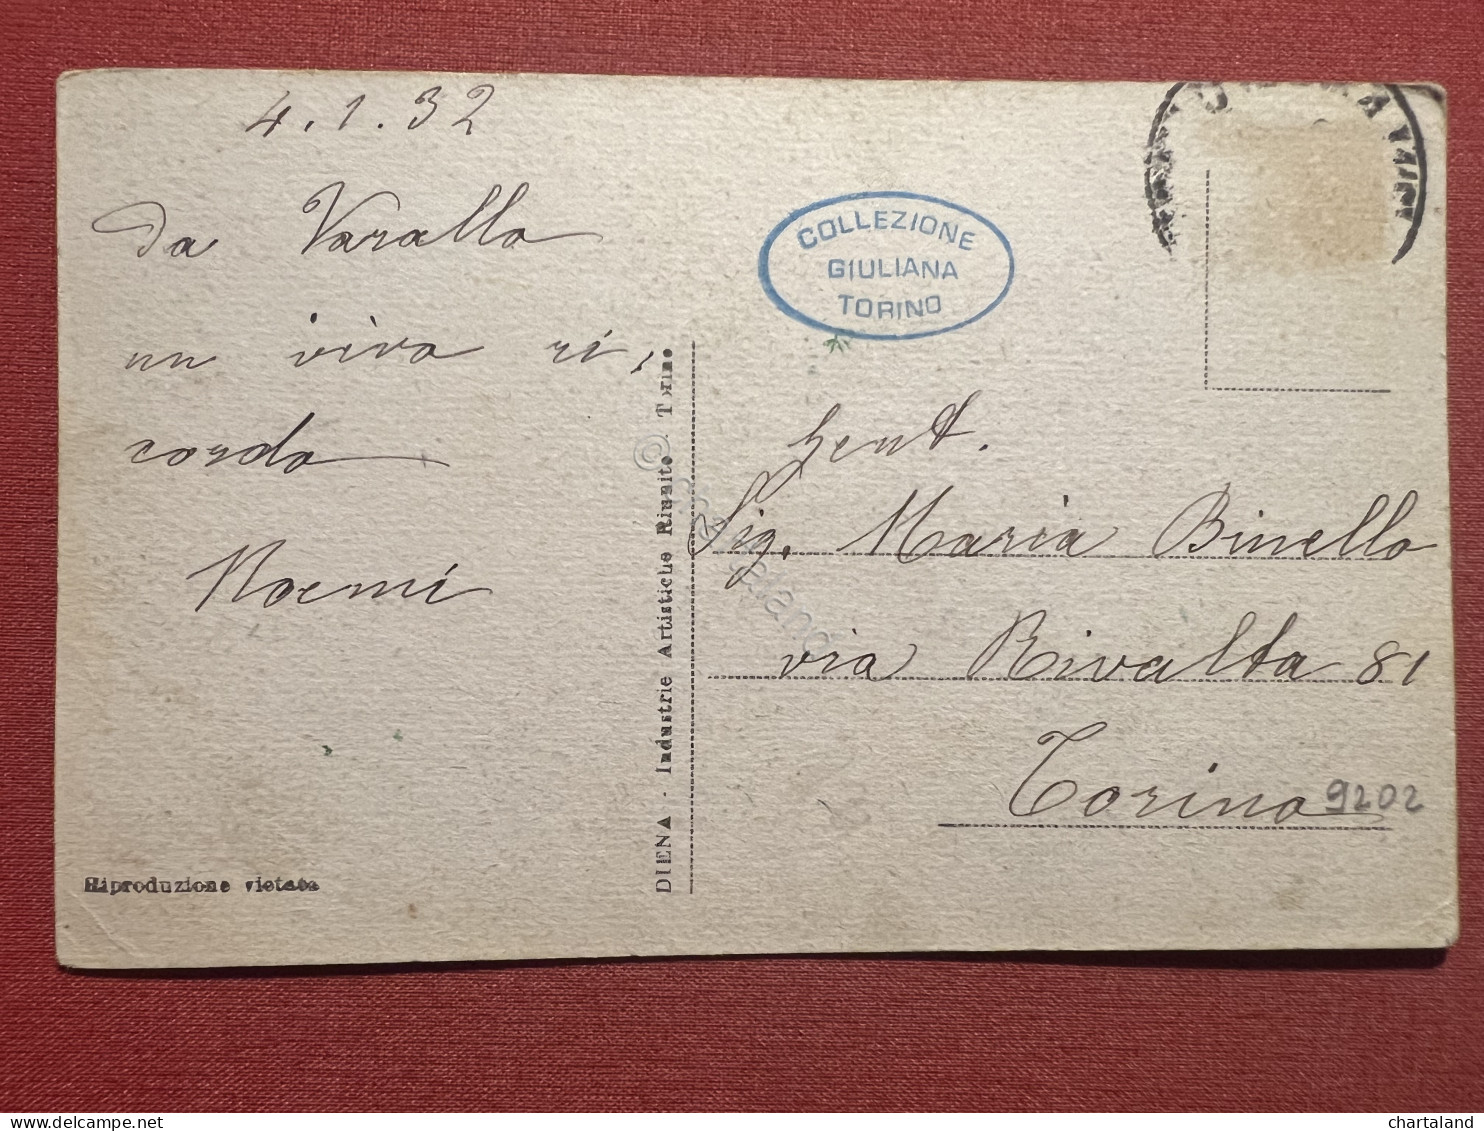 4.1.32
da Varallo
un vivo ri,
cordo
Noemi
Riproduzione vietata
DIENA - Industrie Artistiche Riunite - Torino
COLLEZIONE
GIULIANA
TORINO
Gent.
Sig. Maria Binello
via Rivalta 81
Torino
9202
delcampe.net
chartaland